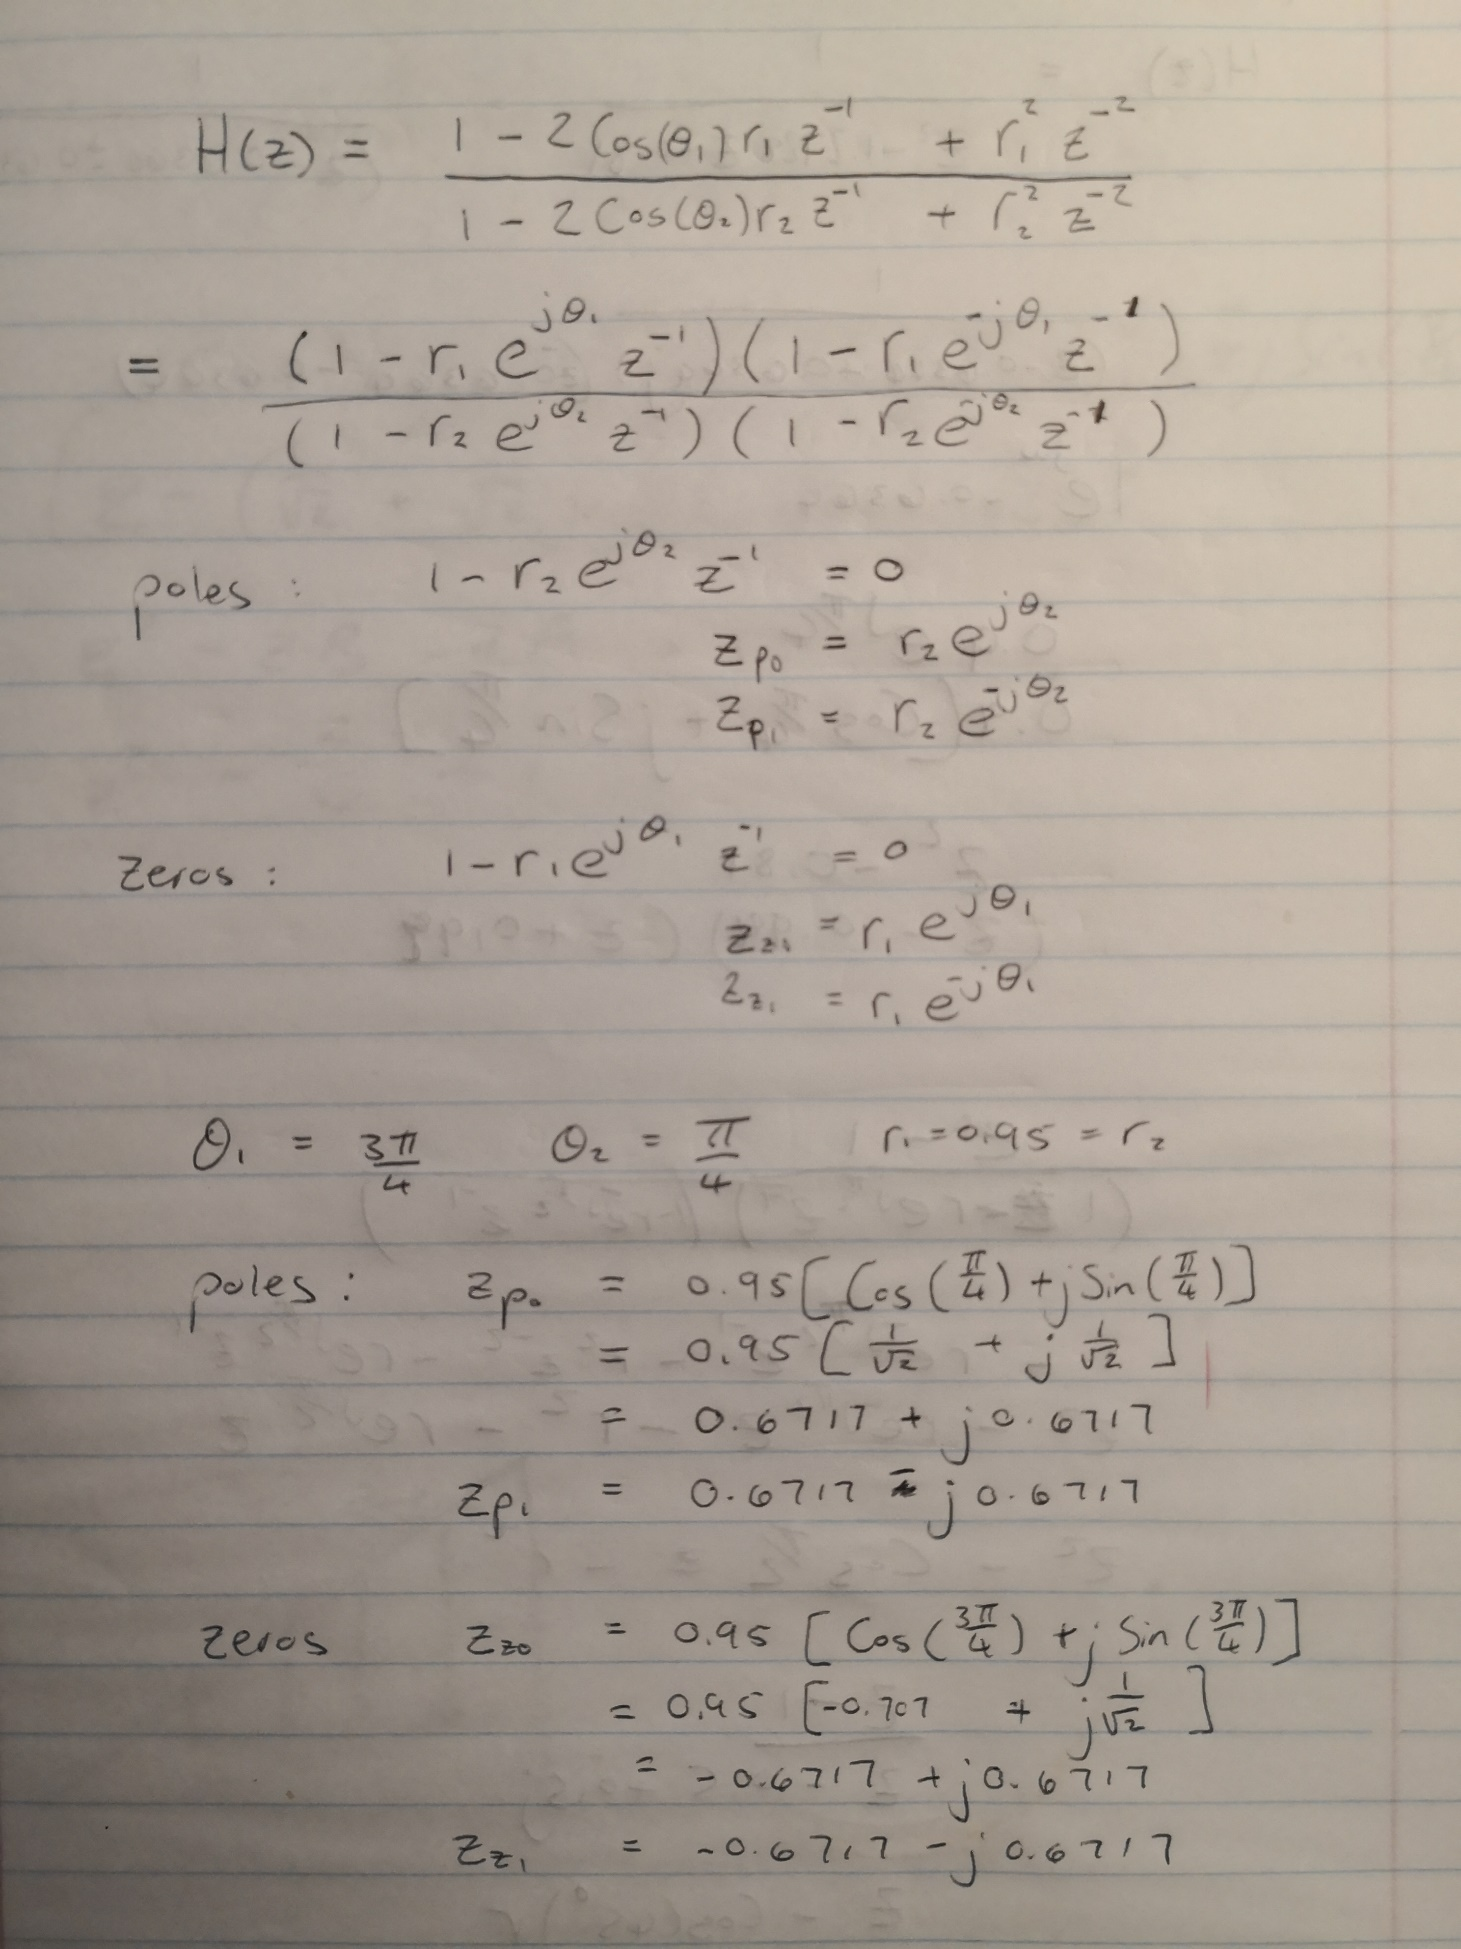 H(z) = (1 - 2 Cos(θ₁) r₁ z⁻¹ + r₁² z⁻²) / (1 - 2 Cos(θ₂) r₂ z⁻¹ + r₂² z⁻²)
= (1 - r₁ e^{jθ₁} z⁻¹)(1 - r₁ e^{-jθ₁} z⁻¹) / (1 - r₂ e^{jθ₂} z⁻¹)(1 - r₂ e^{-jθ₂} z⁻¹)
poles : 1 - r₂ e^{jθ₂} z⁻¹ = 0
z_{p0} = r₂ e^{jθ₂}
z_{p1} = r₂ e^{-jθ₂}
Zeros : 1 - r₁ e^{jθ₁} z⁻¹ = 0
z_{z1} = r₁ e^{jθ₁}
z_{z1} = r₁ e^{-jθ₁}
θ₁ = 3π/4 θ₂ = π/4 r₁ = 0.95 = r₂
poles : z_{p0} = 0.95 [Cos(π/4) + j Sin(π/4)]
= 0.95 [1/√2 + j 1/√2]
= 0.6717 + j0.6717
z_{p1} = 0.6717 - j0.6717
zeros z_{z0} = 0.95 [Cos(3π/4) + j Sin(3π/4)]
= 0.95 [-0.707 + j 1/√2]
= -0.6717 + j0.6717
z_{z1} = -0.6717 - j0.6717